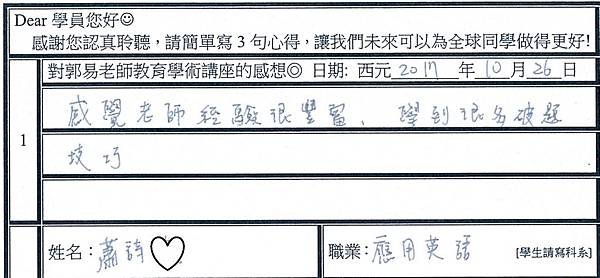 Dear 學員您好☺
感謝您認真聆聽，請簡單寫 3 句心得，讓我們未來可以為全球同學做得更好!
對郭易老師教育學術講座的感想◎ 日期: 西元 2017 年 10 月 26 日
1
感覺老師經驗很豐富、學到很多破題
技巧
姓名：蕭詩♡
職業：應用英語 [學生請寫科系]